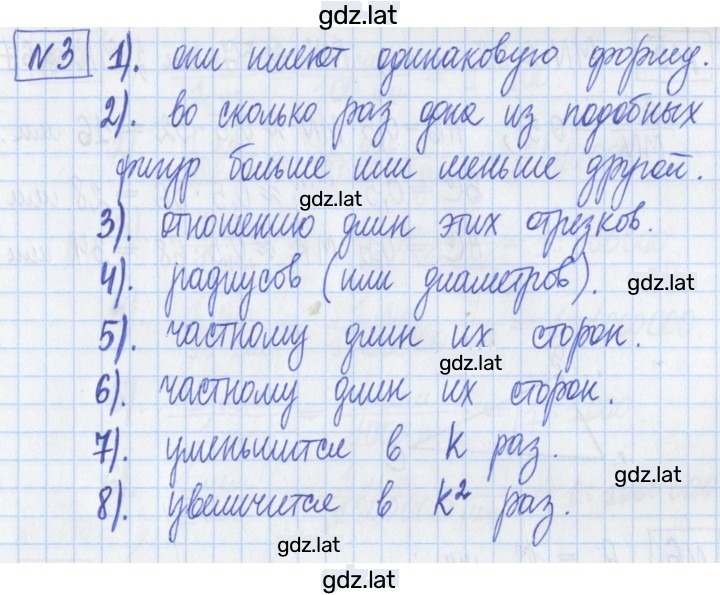 gdz.lat
N 3 1). они имеют одинаковую форму.
2). во сколько раз одна из подобных
фигур больше или меньше другой.
gdz.lat
3). отношению длин этих отрезков.
4). радиусов (или диаметров).
gdz.lat
5). частному длин их сторон.
gdz.lat
6). частному длин их сторон.
7). уменьшится в k раз.
gdz.lat
8). увеличится в k² раз.
gdz.lat
gdz.lat